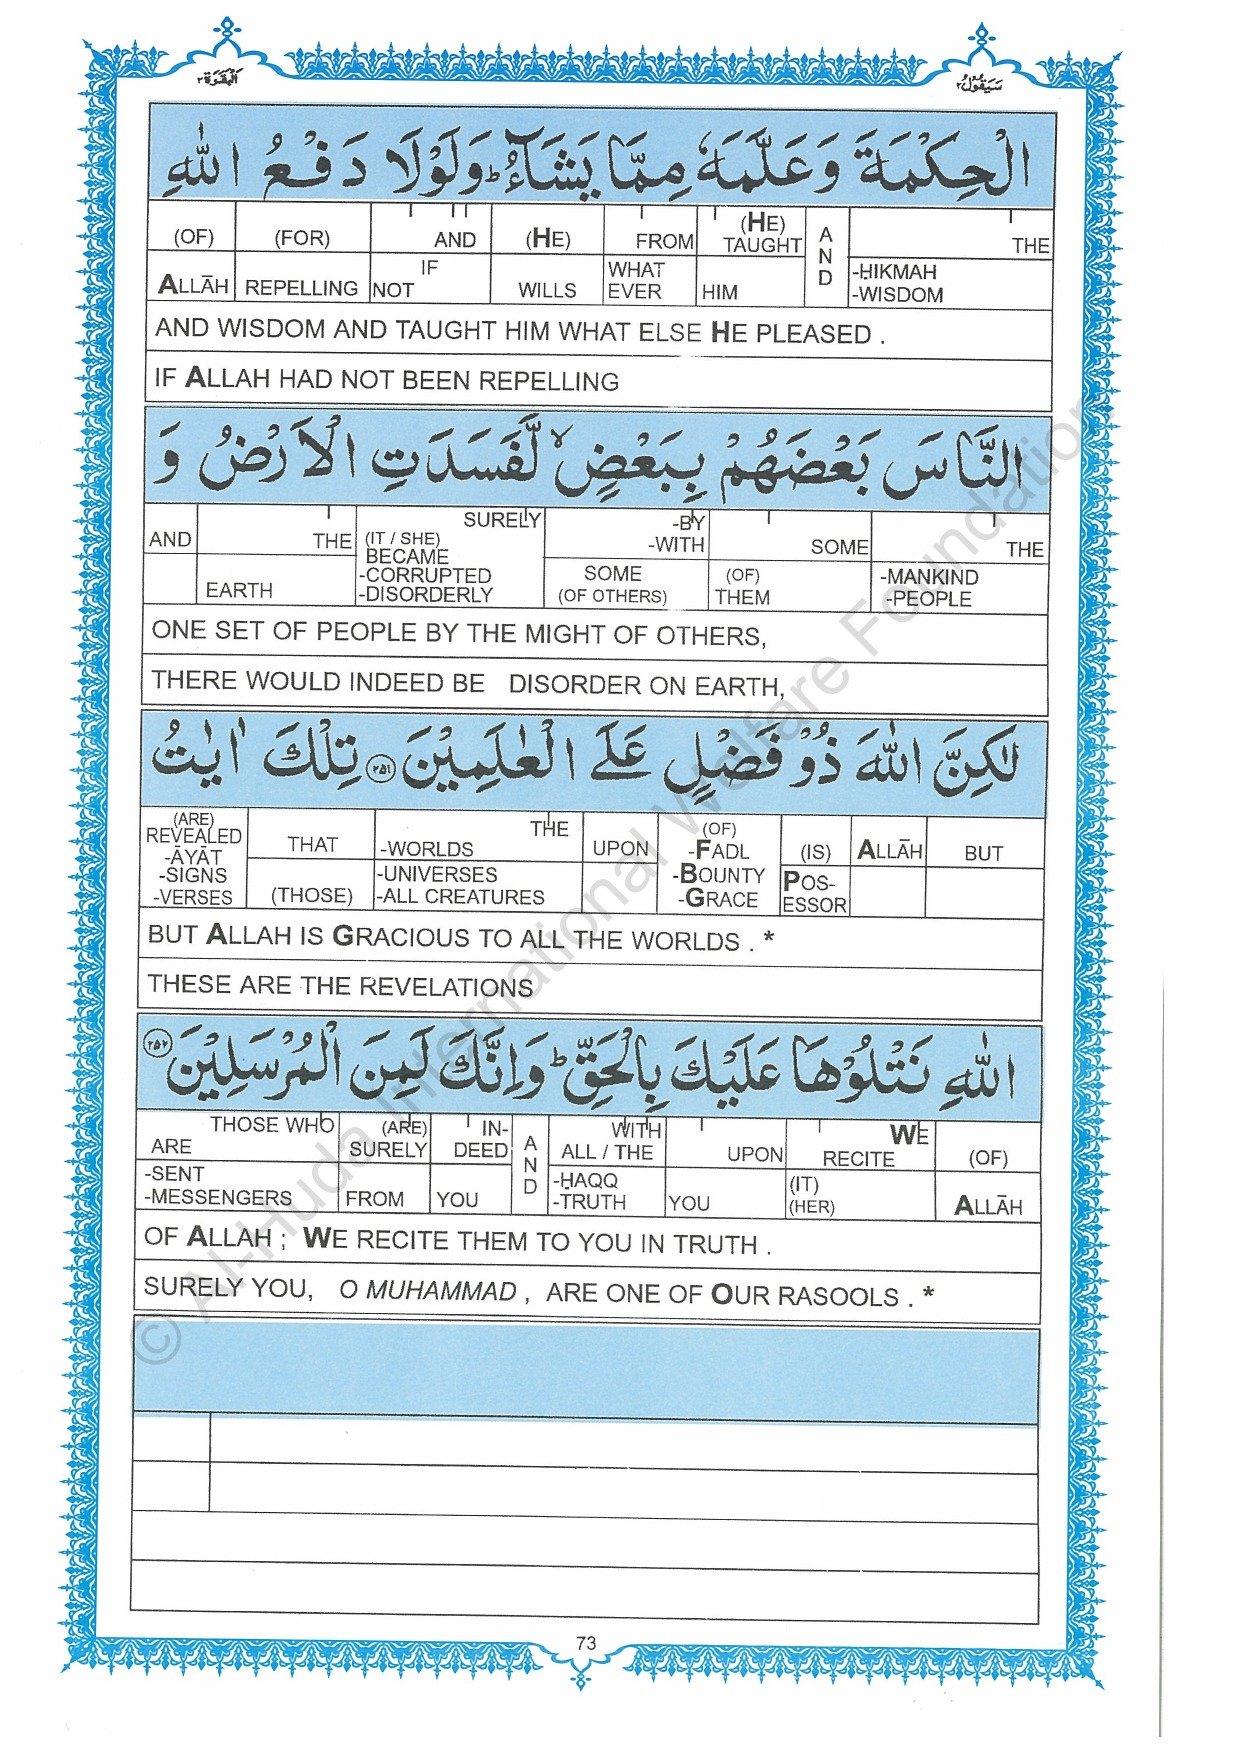 البقرة ٢
سيقول ٢
الْحِكْمَةَ وَعَلَّمَهٗ مِمَّا يَشَآءُ ؕ وَلَوْلَا دَفْعُ اللّٰهِ
(OF) (FOR) AND (HE) FROM (HE) TAUGHT AND THE
ALLĀH REPELLING NOT IF WILLS WHAT EVER HIM -ḤIKMAH -WISDOM
AND WISDOM AND TAUGHT HIM WHAT ELSE HE PLEASED .
IF ALLAH HAD NOT BEEN REPELLING
النَّاسَ بَعْضَهُمْ بِبَعْضٍ ۙ لَّفَسَدَتِ الْاَرْضُ وَ
AND THE SURELY (IT / SHE) BECAME -CORRUPTED -DISORDERLY -BY -WITH SOME THE
EARTH SOME (OF OTHERS) (OF) THEM -MANKIND -PEOPLE
ONE SET OF PEOPLE BY THE MIGHT OF OTHERS,
THERE WOULD INDEED BE DISORDER ON EARTH,
لٰكِنَّ اللّٰهَ ذُوْ فَضْلٍ عَلَى الْعٰلَمِيْنَ ﴿٢٥١﴾ تِلْكَ اٰيٰتُ
(ARE) REVEALED -ĀYĀT -SIGNS -VERSES THAT THE -WORLDS UPON (OF) -FADL -BOUNTY -GRACE (IS) ALLĀH BUT
(THOSE) -UNIVERSES -ALL CREATURES POS- ESSOR
BUT ALLAH IS GRACIOUS TO ALL THE WORLDS . *
THESE ARE THE REVELATIONS
اللّٰهِ نَتْلُوْهَا عَلَيْكَ بِالْحَقِّ ؕ وَاِنَّكَ لَمِنَ الْمُرْسَلِيْنَ ﴿٢٥٢﴾
THOSE WHO ARE (ARE) SURELY IN- DEED AND WITH ALL / THE UPON WE RECITE (OF)
-SENT -MESSENGERS FROM YOU -ḤAQQ -TRUTH YOU (IT) (HER) ALLĀH
OF ALLAH ; WE RECITE THEM TO YOU IN TRUTH .
SURELY YOU, O MUHAMMAD , ARE ONE OF OUR RASOOLS . *
73
© Al-Huda International Welfare Foundation